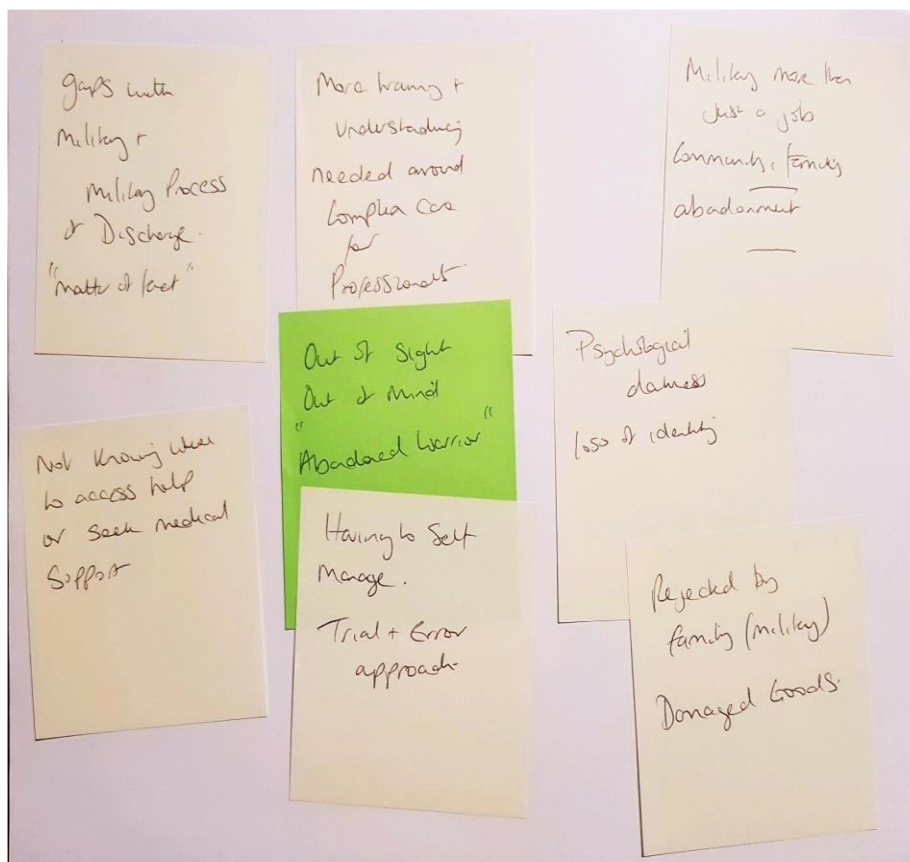 gaps with
Military +
Military Process
of Discharge.
"matter of fact"
More training +
Understanding
needed around
Complex Case
for
Professionals.
Military more than
Just a job
Community, family
abadonment
Out of Sight
Out of Mind
"Abadoned Warrior"
Psychological
darkness
loss of identity
Not knowing where
to access help
or seek medical
Support
Having to Self
Manage.
Trial + Error
approach.
Rejected by
family (military)
Damaged Goods.